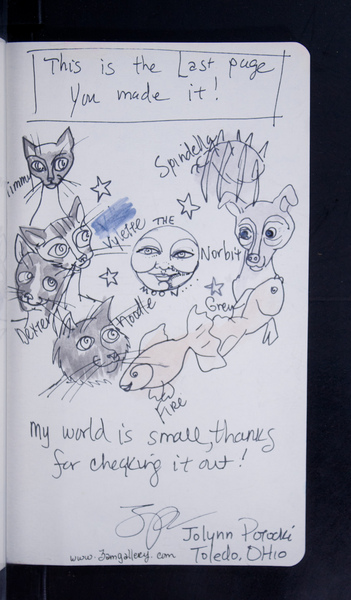 This is the Last page
You made it!
Timmy
Spindella
Vylette
THE
MOON
Norbit
Dexter
Noodle
Grey
FIRE
My world is small, thanks
for cheqking it out!
Jolynn
Toledo, OHIO
www.3amgallery.com